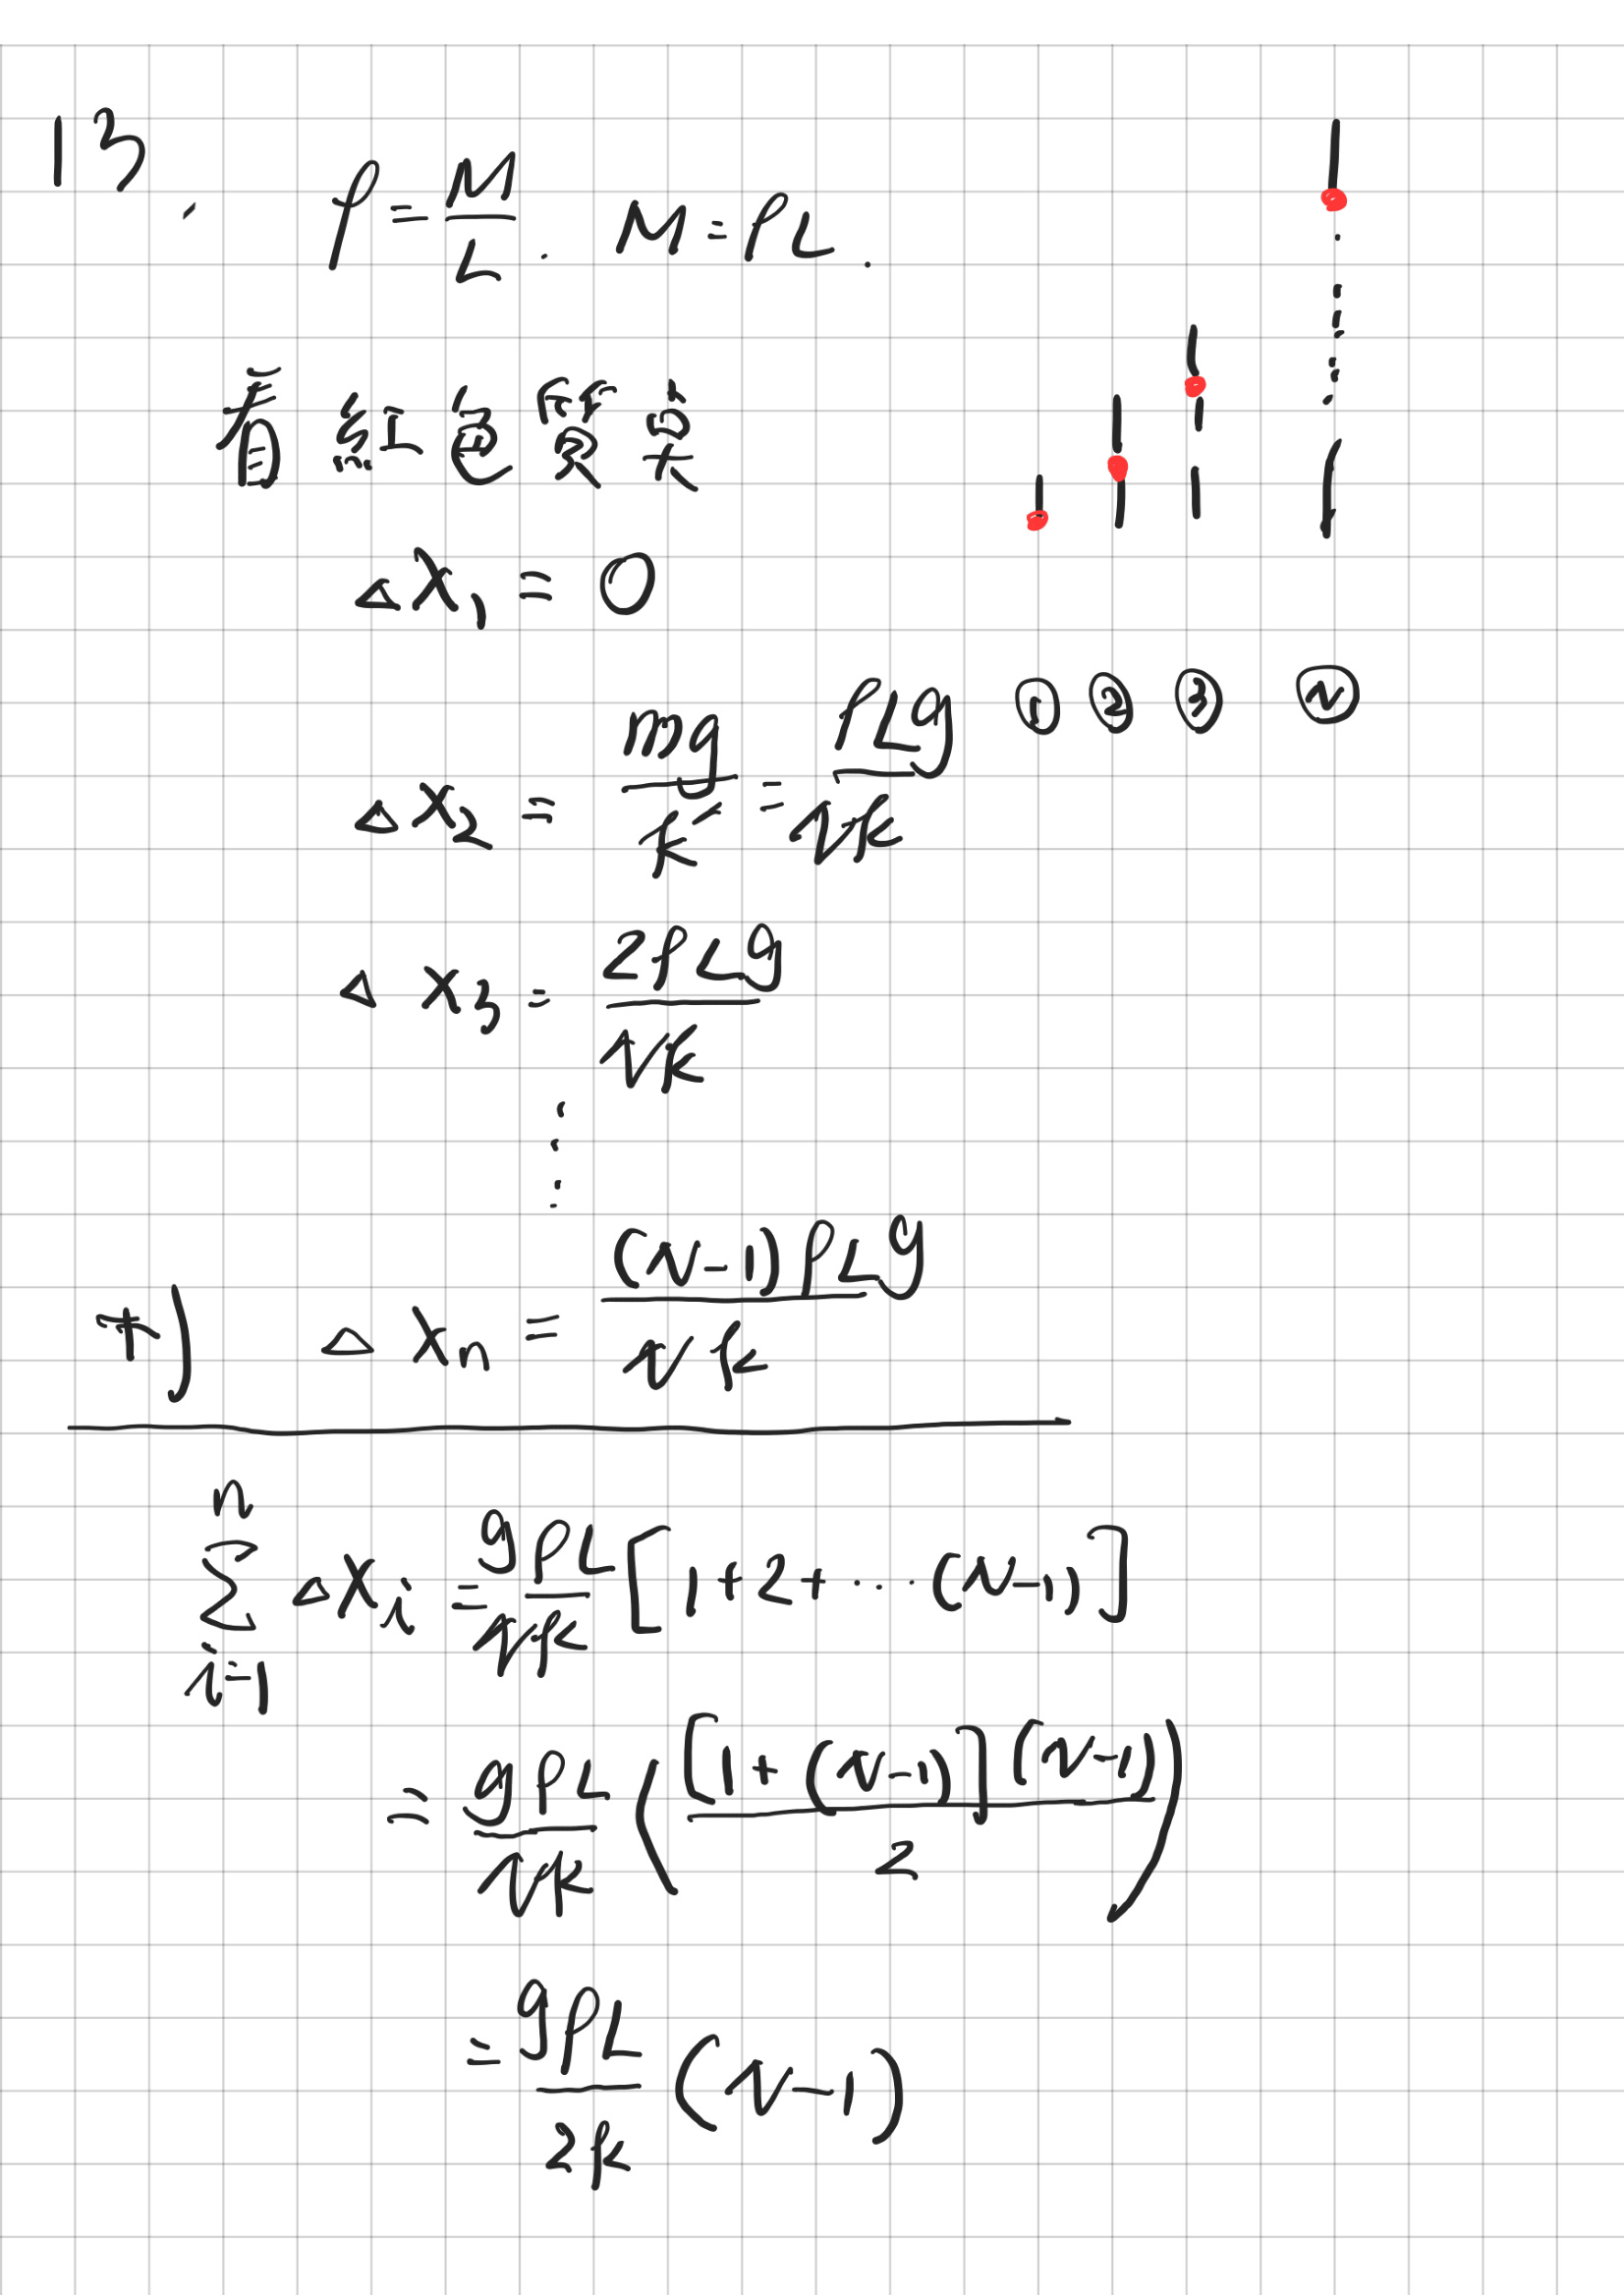 13.
ρ = M/L . M = ρL .
看紅色質点
△x₁ = 0
① ② ③ Ⓝ
△x₂ = mg/k' = ρLg/Nk
△x₃ = 2ρLg/Nk
⋮
+) △xₙ = (N-1)ρLg/Nk
∑ᵢ₌₁ⁿ △xᵢ = gρL/Nk [1+2+⋯(N-1)]
= gρL/Nk ([1+(N-1)](N-1)/2)
= gρL/2k (N-1)